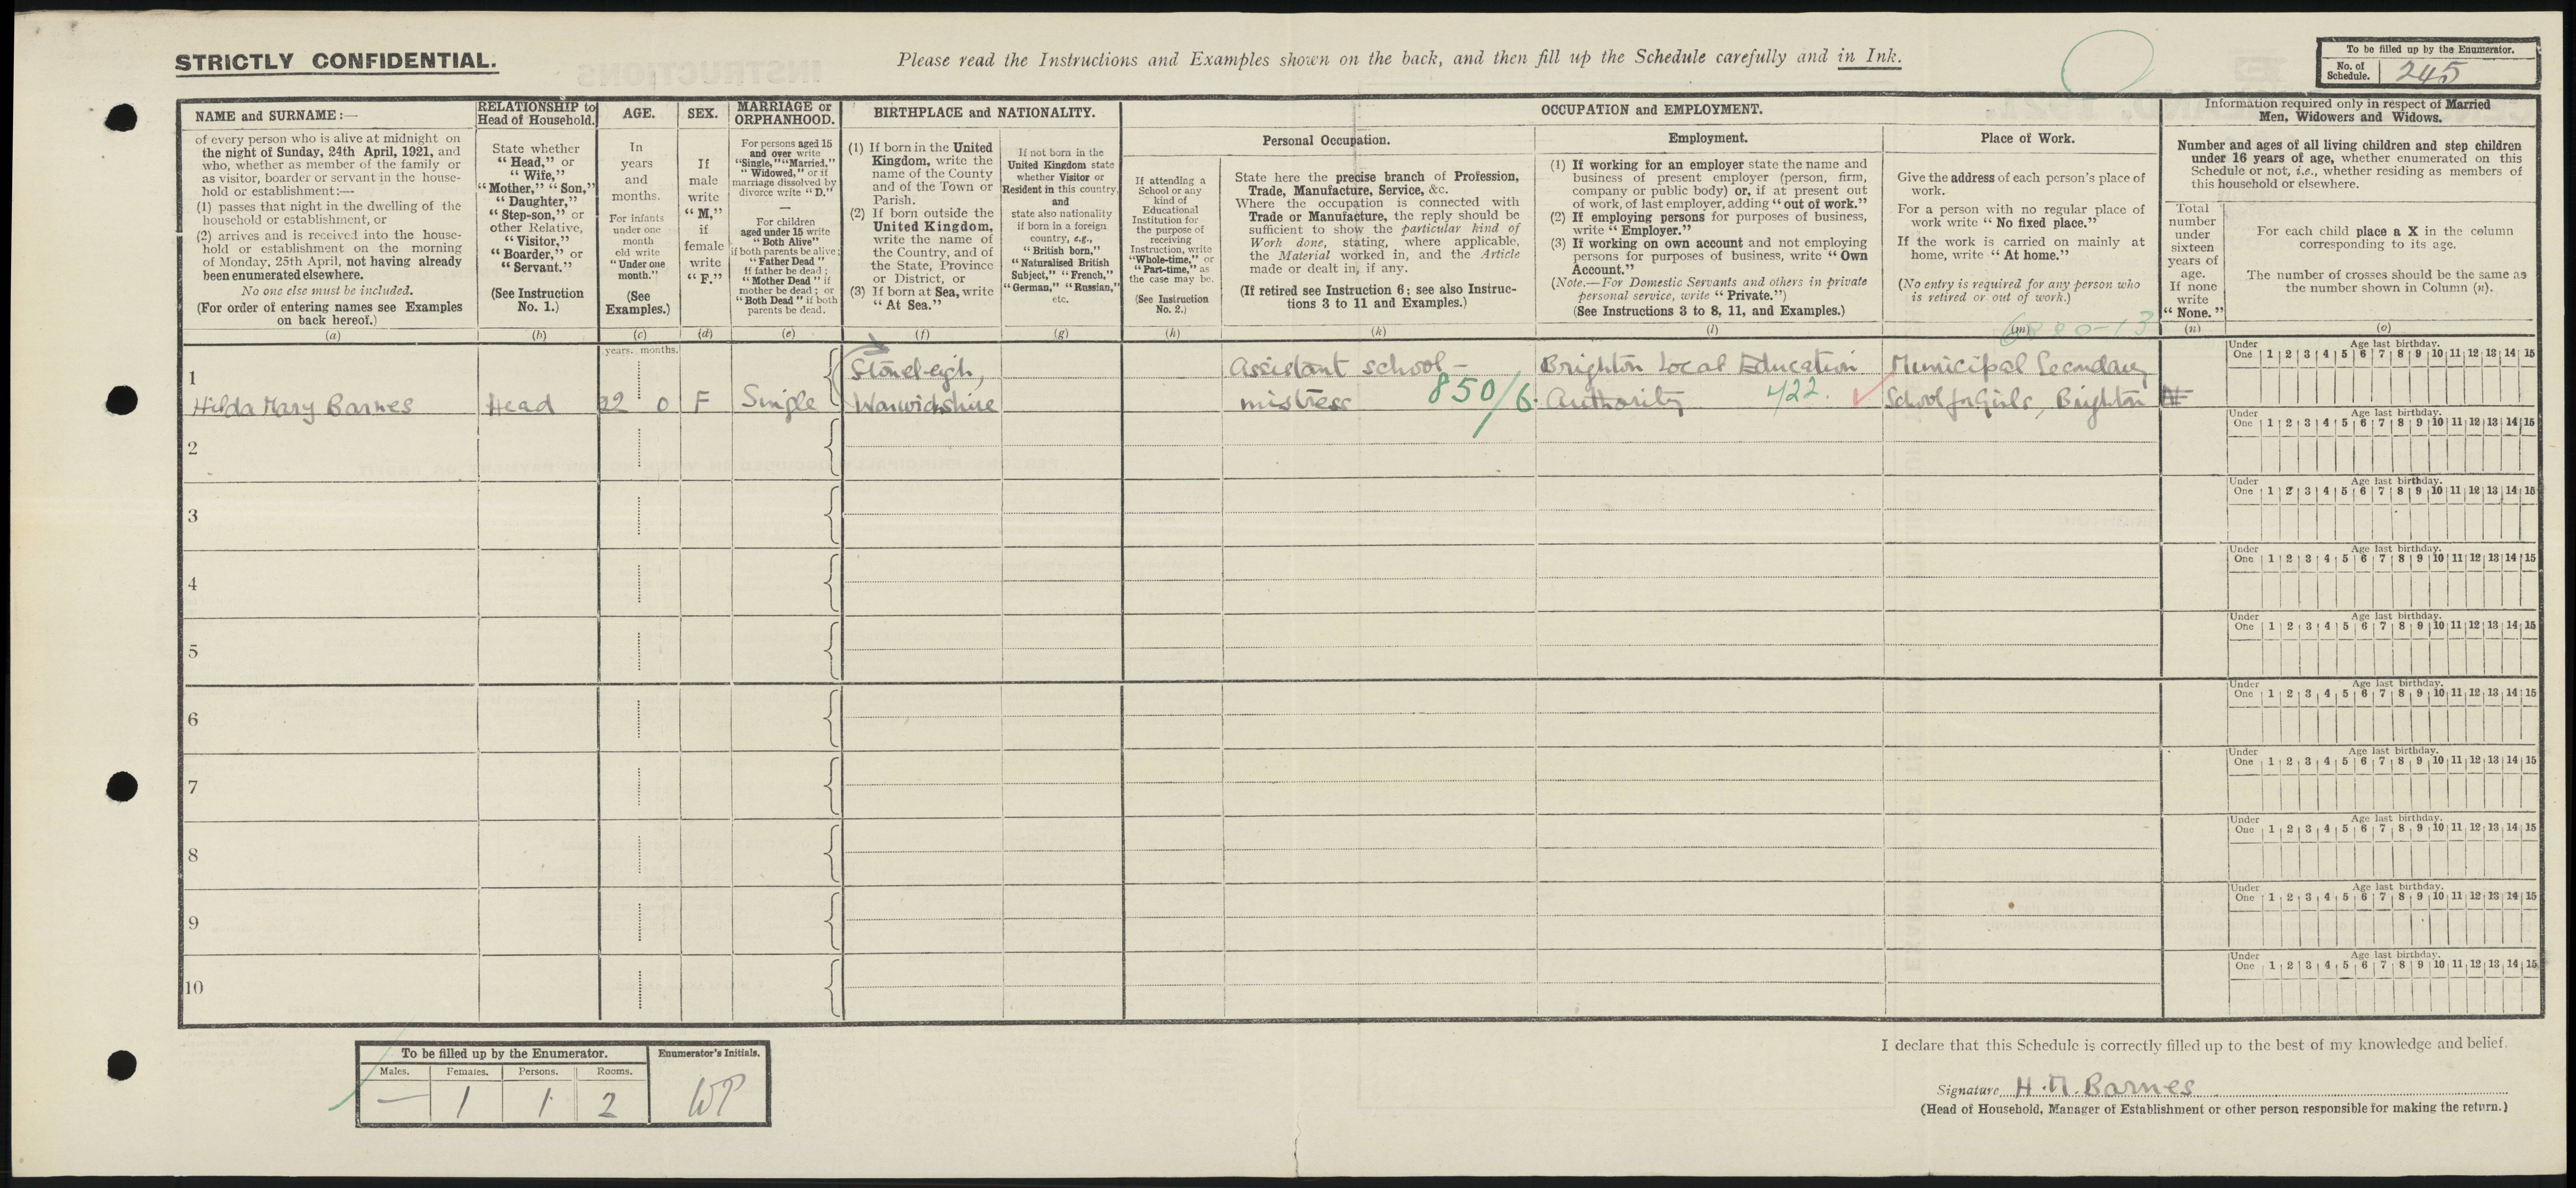 STRICTLY CONFIDENTIAL.
Please read the Instructions and Examples shown on the back, and then fill up the Schedule carefully and in Ink.
To be filled up by the Enumerator.
No. of Schedule. 245
NAME and SURNAME:—
of every person who is alive at midnight on
the night of Sunday, 24th April, 1921, and
who, whether as member of the family or
as visitor, boarder or servant in the house-
hold or establishment:—
(1) passes that night in the dwelling of the
household or establishment, or
(2) arrives and is received into the house-
hold or establishment on the morning
of Monday, 25th April, not having already
been enumerated elsewhere.
No one else must be included.
(For order of entering names see Examples
on back hereof.)
(a)
RELATIONSHIP to
Head of Household.
State whether
"Head," or
"Wife,"
"Mother," "Son,"
"Daughter,"
"Step-son," or
other Relative,
"Visitor,"
"Boarder," or
"Servant."
(See Instruction
No. 1.)
(b)
AGE.
In
years
and
months.
For infants
under one
month
old write
"Under one
month."
(See
Examples.)
(c)
SEX.
If
male
write
"M,"
if
female
write
"F."
(d)
MARRIAGE or
ORPHANHOOD.
For persons aged 15
and over write
"Single," "Married,"
"Widowed," or if
marriage dissolved by
divorce write "D."
—
For children
aged under 15 write
"Both Alive"
if both parents be alive;
"Father Dead"
if father be dead;
"Mother Dead" if
mother be dead; or
"Both Dead" if both
parents be dead.
(e)
BIRTHPLACE and NATIONALITY.
(1) If born in the United
Kingdom, write the
name of the County
and of the Town or
Parish.
(2) If born outside the
United Kingdom,
write the name of
the Country, and of
the State, Province
or District, or
(3) If born at Sea, write
"At Sea."
(f)
If not born in the
United Kingdom state
whether Visitor or
Resident in this country,
and
state also nationality
if born in a foreign
country, e.g.,
"British born,"
"Naturalised British
Subject," "French,"
"German," "Russian,"
etc.
(g)
OCCUPATION and EMPLOYMENT.
If attending a
School or any
kind of
Educational
Institution for
the purpose of
receiving
Instruction, write
"Whole-time," or
"Part-time," as
the case may be.
(See Instruction
No. 2.)
(h)
Personal Occupation.
State here the precise branch of Profession,
Trade, Manufacture, Service, &c.
Where the occupation is connected with
Trade or Manufacture, the reply should be
sufficient to show the particular kind of
Work done, stating, where applicable,
the Material worked in, and the Article
made or dealt in, if any.
(If retired see Instruction 6; see also Instruc-
tions 3 to 11 and Examples.)
(k)
Employment.
(1) If working for an employer state the name and
business of present employer (person, firm,
company or public body) or, if at present out
of work, of last employer, adding "out of work."
(2) If employing persons for purposes of business,
write "Employer."
(3) If working on own account and not employing
persons for purposes of business, write "Own
Account."
(Note.—For Domestic Servants and others in private
personal service, write "Private.")
(See Instructions 3 to 8, 11, and Examples.)
(l)
Place of Work.
Give the address of each person's place of
work.
For a person with no regular place of
work write "No fixed place."
If the work is carried on mainly at
home, write "At home."
(No entry is required for any person who
is retired or out of work.)
(m)
Information required only in respect of Married
Men, Widowers and Widows.
Number and ages of all living children and step children
under 16 years of age, whether enumerated on this
Schedule or not, i.e., whether residing as members of
this household or elsewhere.
Total
number
under
sixteen
years of
age.
If none
write
"None."
(n)
For each child place a X in the column
corresponding to its age.
The number of crosses should be the same as
the number shown in Column (n).
(o)
years. months.
1
Hilda Mary Barnes
Head
22 0
F
Single
Stoneleigh,
Warwickshire
Assistant school-
mistress
850/6.
Brighton Local Education
Authority
422.
Municipal Secondary
School for Girls, Brighton
Under One Age last birthday.
1 2 3 4 5 6 7 8 9 10 11 12 13 14 15
2
Under One Age last birthday.
1 2 3 4 5 6 7 8 9 10 11 12 13 14 15
3
Under One Age last birthday.
1 2 3 4 5 6 7 8 9 10 11 12 13 14 15
4
Under One Age last birthday.
1 2 3 4 5 6 7 8 9 10 11 12 13 14 15
5
Under One Age last birthday.
1 2 3 4 5 6 7 8 9 10 11 12 13 14 15
6
Under One Age last birthday.
1 2 3 4 5 6 7 8 9 10 11 12 13 14 15
7
Under One Age last birthday.
1 2 3 4 5 6 7 8 9 10 11 12 13 14 15
8
Under One Age last birthday.
1 2 3 4 5 6 7 8 9 10 11 12 13 14 15
9
Under One Age last birthday.
1 2 3 4 5 6 7 8 9 10 11 12 13 14 15
10
Under One Age last birthday.
1 2 3 4 5 6 7 8 9 10 11 12 13 14 15
To be filled up by the Enumerator.
Enumerator's Initials.
Males. Females. Persons. Rooms.
— 1 1 2
WP
I declare that this Schedule is correctly filled up to the best of my knowledge and belief.
Signature H. M. Barnes
(Head of Household, Manager of Establishment or other person responsible for making the return.)